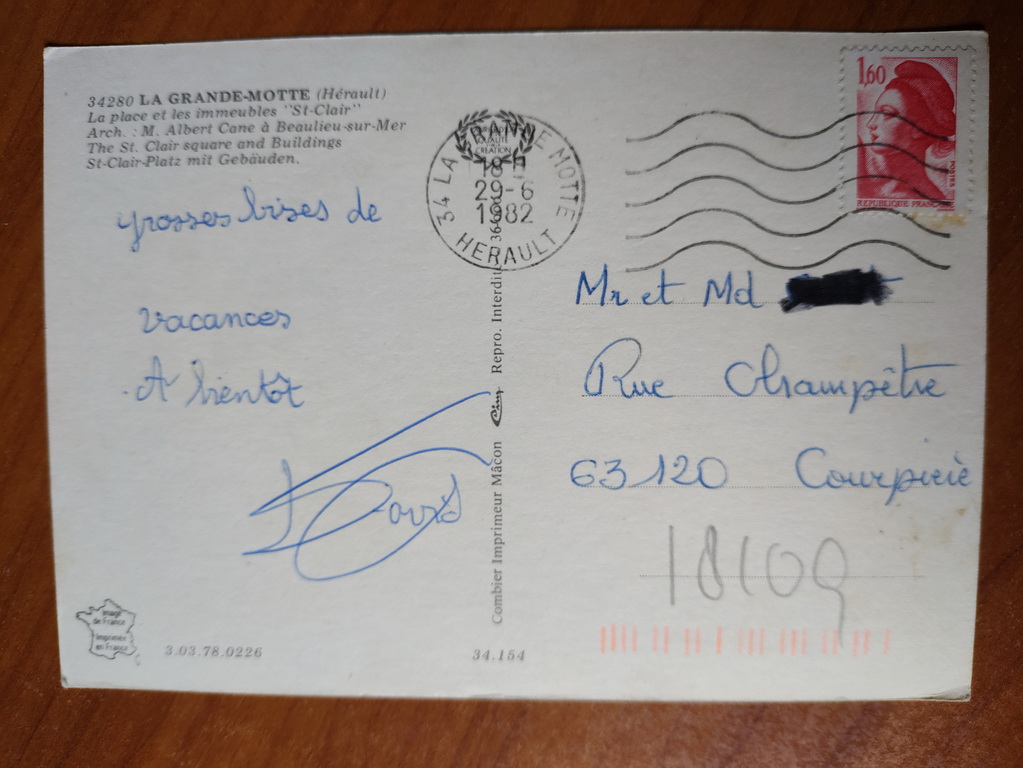 34280 LA GRANDE-MOTTE (Hérault)
La place et les immeubles "St-Clair"
Arch. : M. Albert Cane à Beaulieu-sur-Mer
The St. Clair square and Buildings
St-Clair-Platz mit Gebäuden.
grosses bises de
vacances
A bientôt
34 LA GRANDE MOTTE
29-6
1982
HERAULT
1,60
POSTES
REPUBLIQUE FRANCAISE
Mr et Md
Rue Champêtre
63120 Courpière
18109
Combier Imprimeur Mâcon
Repro. Interdite
Image
de France
Imprimée
en France
3.03.78.0226
34.154